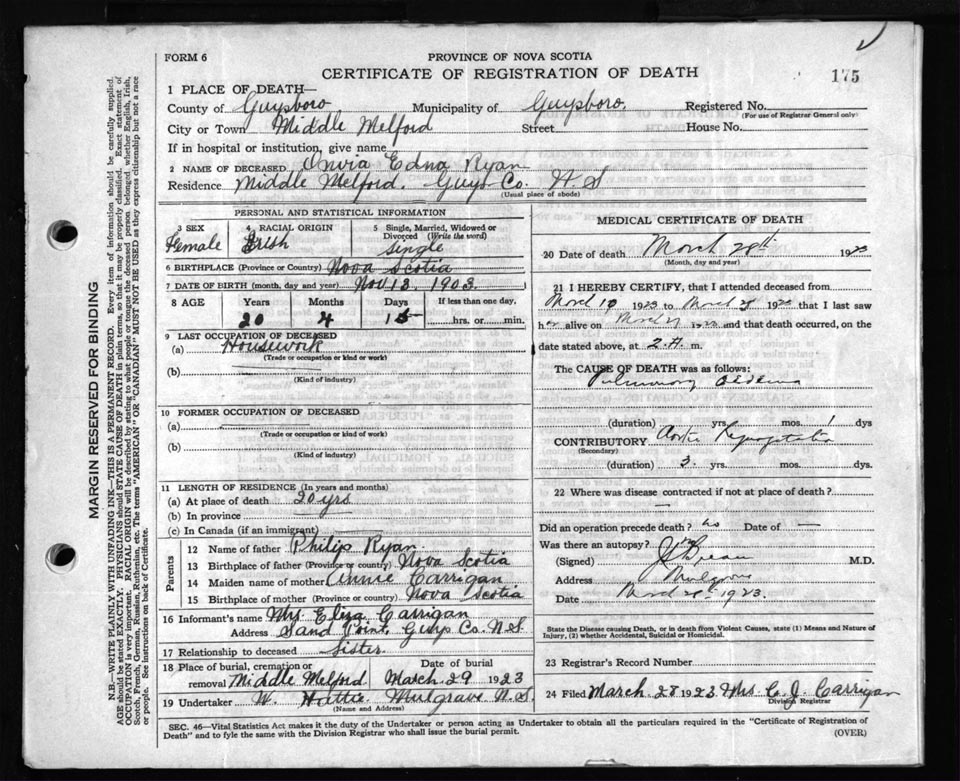 FORM 6
PROVINCE OF NOVA SCOTIA
CERTIFICATE OF REGISTRATION OF DEATH
175
1 PLACE OF DEATH—
County of Guysboro Municipality of Guysboro. Registered No.
(For use of Registrar General only)
City or Town Middle Melford Street House No.
If in hospital or institution, give name
2 NAME OF DECEASED Edna Ryan
Residence Middle Melford. Guys Co. N.S
(Usual place of abode)
PERSONAL AND STATISTICAL INFORMATION
3 SEX 4 RACIAL ORIGIN 5 Single, Married, Widowed or Divorced (Write the word)
Female Irish Single
6 BIRTHPLACE (Province or Country) Nova Scotia
7 DATE OF BIRTH (month, day and year) Nov 13. 1903.
8 AGE Years Months Days If less than one day,
20 4 15 hrs. or min.
9 LAST OCCUPATION OF DECEASED
(a) Housework
(Trade or occupation or kind or work)
(b)
(Kind of industry)
10 FORMER OCCUPATION OF DECEASED
(a)
(Trade or occupation or kind of work)
(b)
(Kind of industry)
11 LENGTH OF RESIDENCE (In years and months)
(a) At place of death 20 yrs
(b) In province
(c) In Canada (if an immigrant)
Parents
12 Name of father Philip Ryan
13 Birthplace of father (Province or country) Nova Scotia
14 Maiden name of mother Annie Carrigan
15 Birthplace of mother (Province or country) Nova Scotia
16 Informant's name Mrs Eliza Carrigan
Address Sand Point, Guys Co. N.S.
17 Relationship to deceased Sister
18 Place of burial, cremation or removal Middle Melford Date of burial March 29 1923
19 Undertaker W. Hattie Mulgrave N.S.
(Name and Address)
MEDICAL CERTIFICATE OF DEATH
20 Date of death March 28th 1923
(Month, day and year)
21 I HEREBY CERTIFY, that I attended deceased from
March 1923 to March 192 that I last saw
her alive on March and that death occurred, on
date stated above, at 2.A. m.
The CAUSE OF DEATH was as follows:
Pulmonary Oedema
(duration) yrs. mos. 1 days
CONTRIBUTORY Aortic Regurgitation
(Secondary)
(duration) 3. yrs. mos. dys.
22 Where was disease contracted if not at place of death?
Did an operation precede death? no Date of —
Was there an autopsy? no
(Signed) M.D.
Address Mulgrave
Date March 28th 1923.
State the Disease causing Death, or in death from Violent Causes, state (1) Means and Nature of
Injury, (2) whether Accidental, Suicidal or Homicidal.
23 Registrar's Record Number
24 Filed March 28 1923 Mrs C. J. Carrigan
Division Registrar
SEC. 46—Vital Statistics Act makes it the duty of the Undertaker or person acting as Undertaker to obtain all the particulars required in the "Certificate of Registration of
Death" and to fyle the same with the Division Registrar who shall issue the burial permit.
(OVER)
MARGIN RESERVED FOR BINDING
N.B.—WRITE PLAINLY WITH UNFADING INK—THIS IS A PERMANENT RECORD. Every item of information should be carefully supplied.
AGE should be stated EXACTLY. PHYSICIANS should STATE CAUSE OF DEATH in plain terms, so that it may be properly classified. Exact statement of
OCCUPATION is very important. RACIAL ORIGIN will be described by stating to what people or tongue the deceased person belonged, whether English, Irish,
Scotch, French, German, Russian, Ruthenian, etc. The terms "AMERICAN" OR "CANADIAN" MUST NOT BE USED as they express citizenship but not a race
or people. See instructions on back of Certificate.